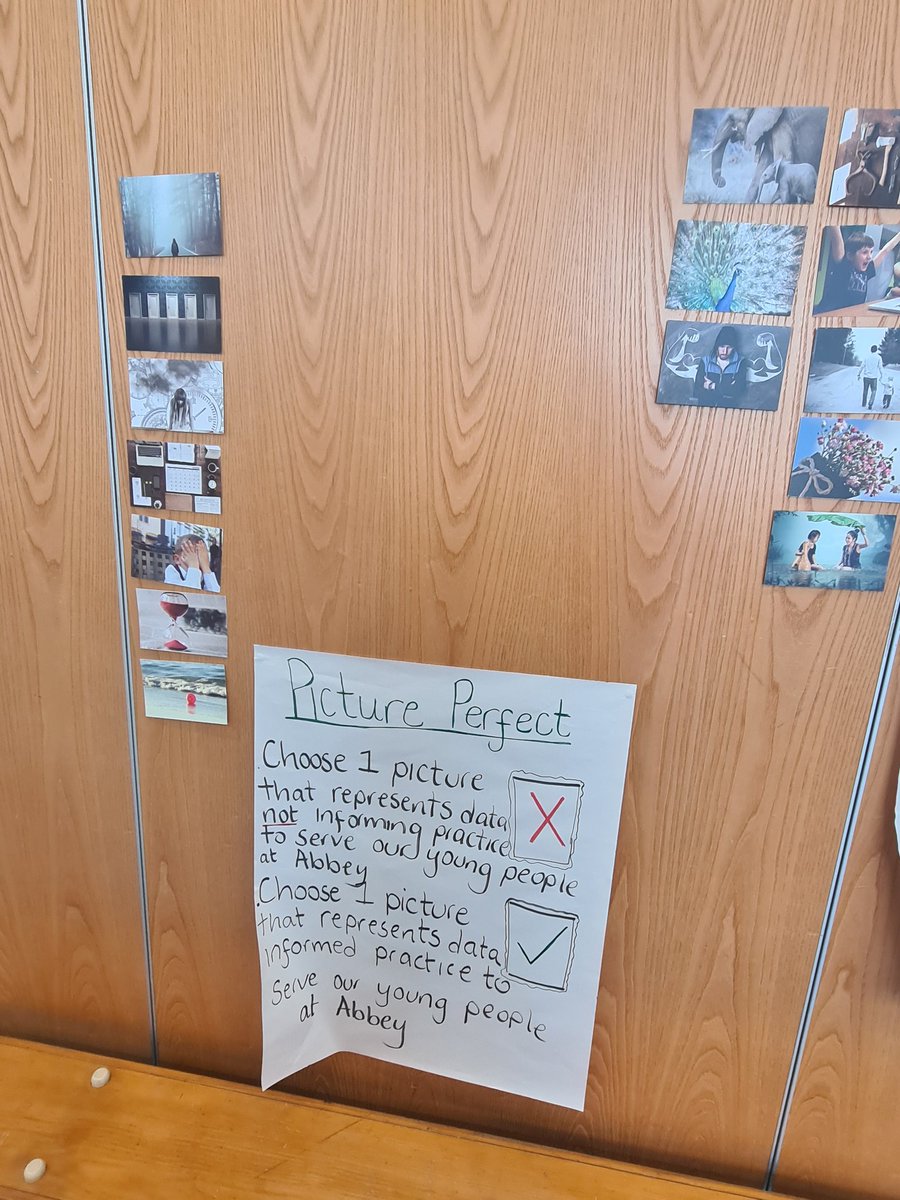 Picture Perfect
.Choose 1 picture
that represents data
not informing practice
to serve our young people
at Abbey
.Choose 1 picture
that represents data
informed practice to
serve our young people
at Abbey